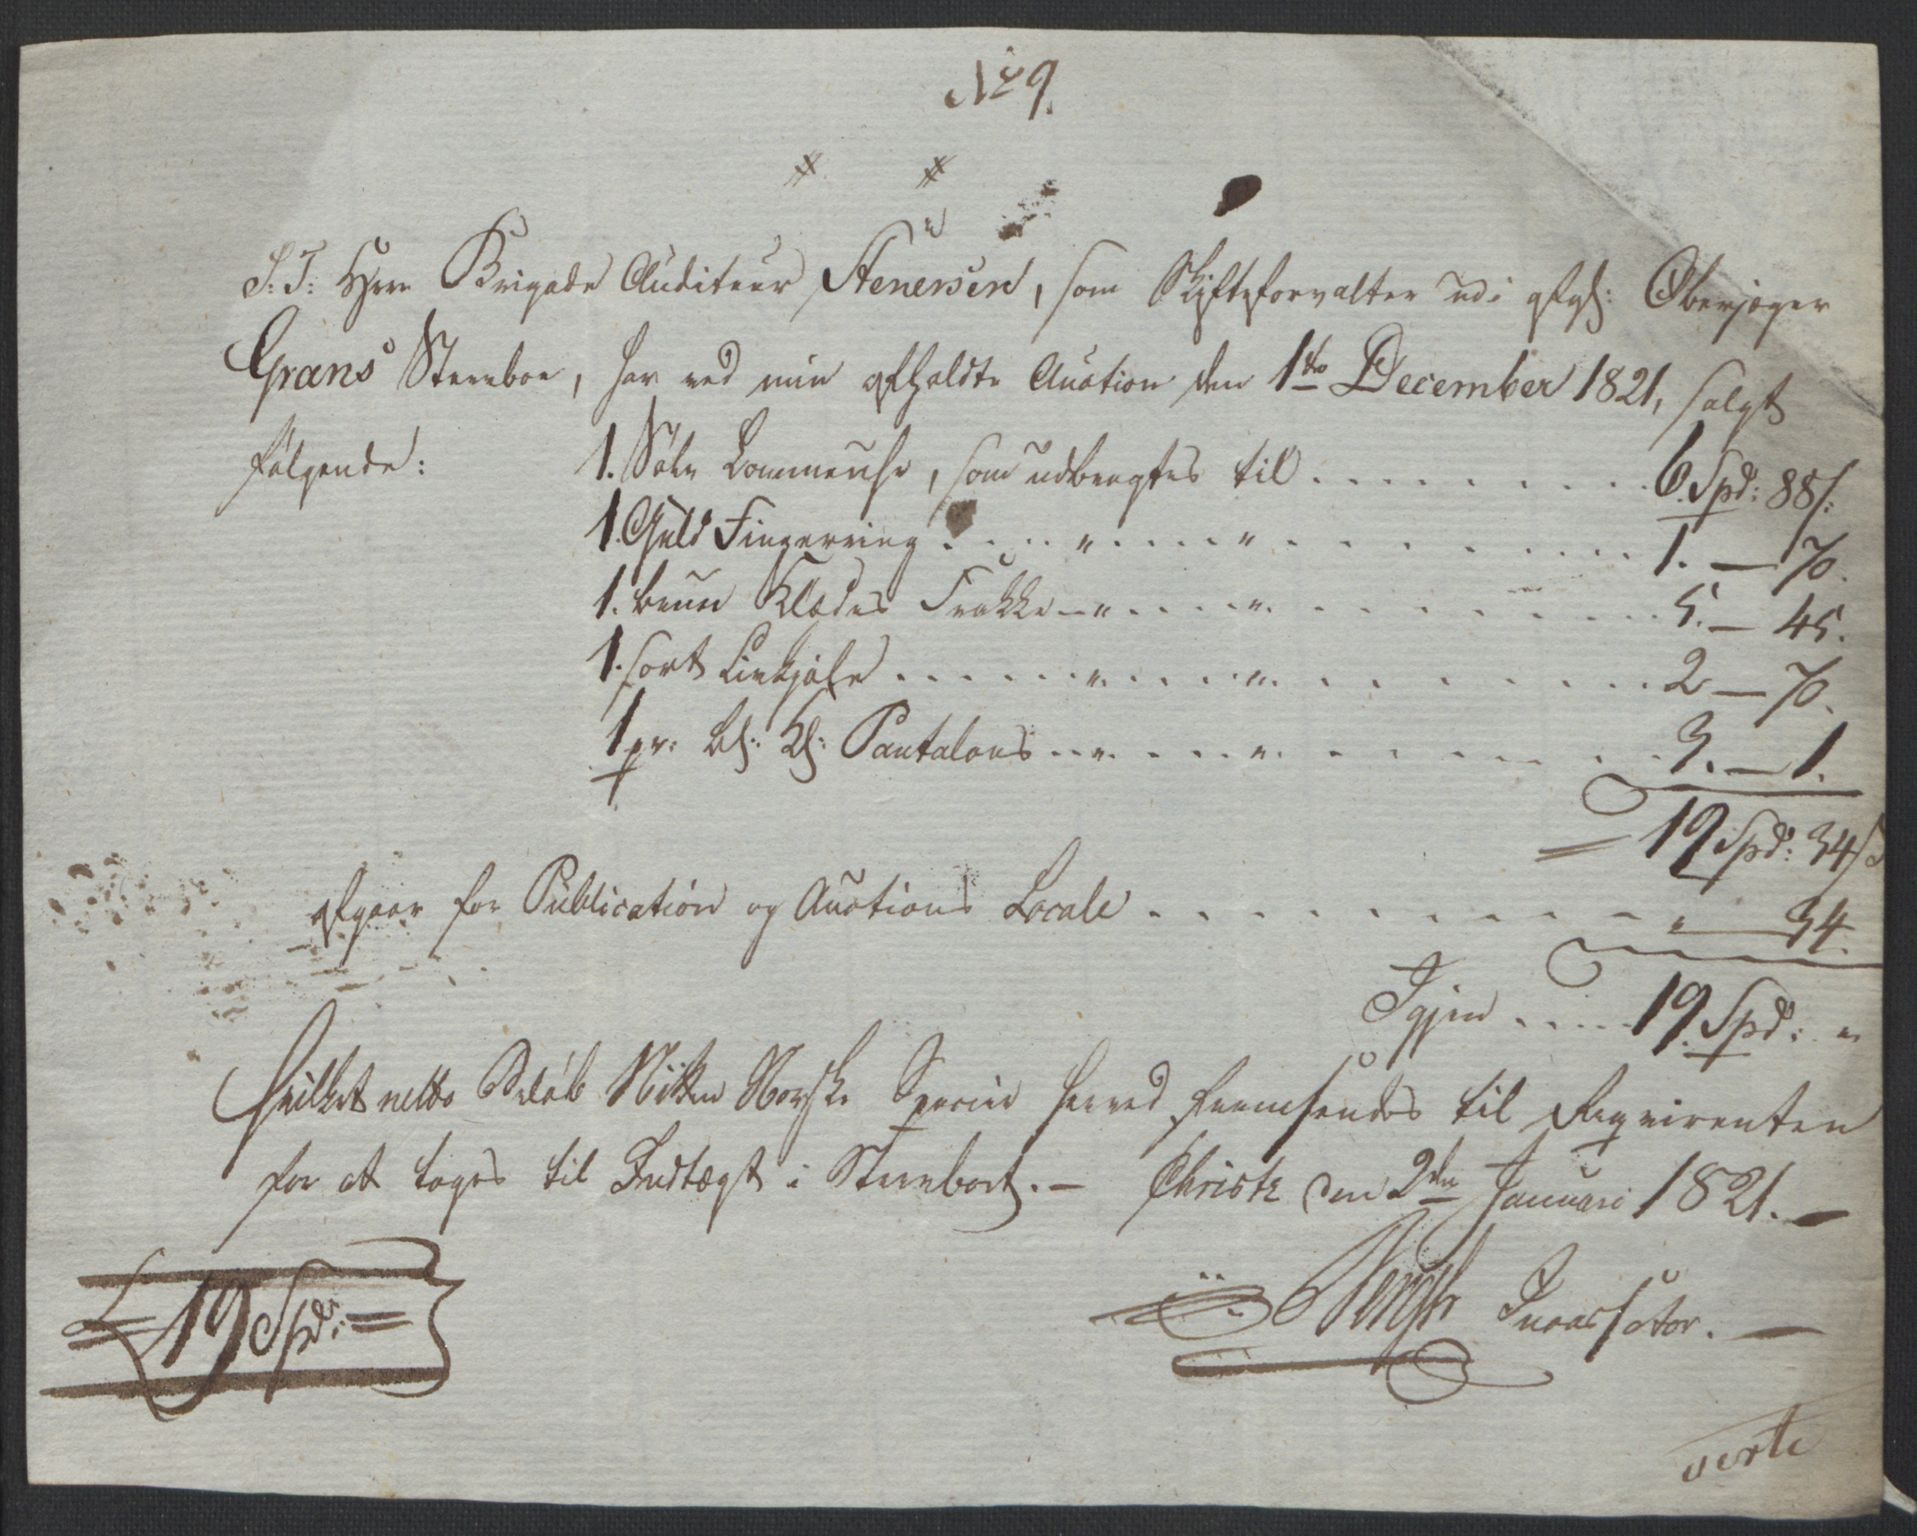 No 9.
S: T: Herr Brigade Auditeur Stenersen, som Skifteforvalter udi afg: Oberjæger
Grans Stervboe, har ved min afholdte Auction den 1ste December 1821, solgt
følgende:
1. Sølv Lommeuhr, som udbragtes til . . . . . . . . . 6 Spd: 88 s:
1. Guld Fingerring . . . . " . . . . " . . . . . . . . . 1. — 70.
1. bruun Klædes Frakke — " . . . . " . . . . . . . . 5. — 45.
1. sort Livkjole . . . . . . " . . . . " . . . . . . . . 2 — 70.
1 pr: bl: Kl: Pantalons . . " . . . . " . . . . . . . 3. — 1.
= 19 Spd: 34 s
afgaar for Publication og Auctions Locale . . . . . . . . . " — 34.
Igjen . . . . . 19 Spd: "
Hvilket netto Beløb Nitten Norske Specier herved fremsendes til Requirenten
for at tages til Indtægt i Stervboet. — Christa den 2den Januari 1821. —
= 19 Spd: =
Bergh Incassator. —
verte